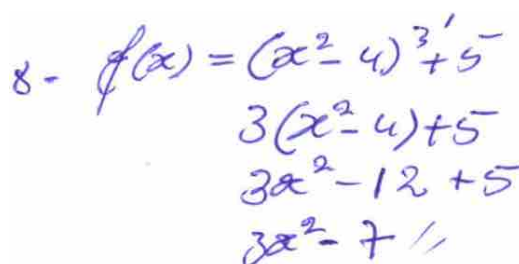 8- f(x) = (x² - 4)³' + 5
3(x² - 4) + 5
3x² - 12 + 5
3x² - 7 //